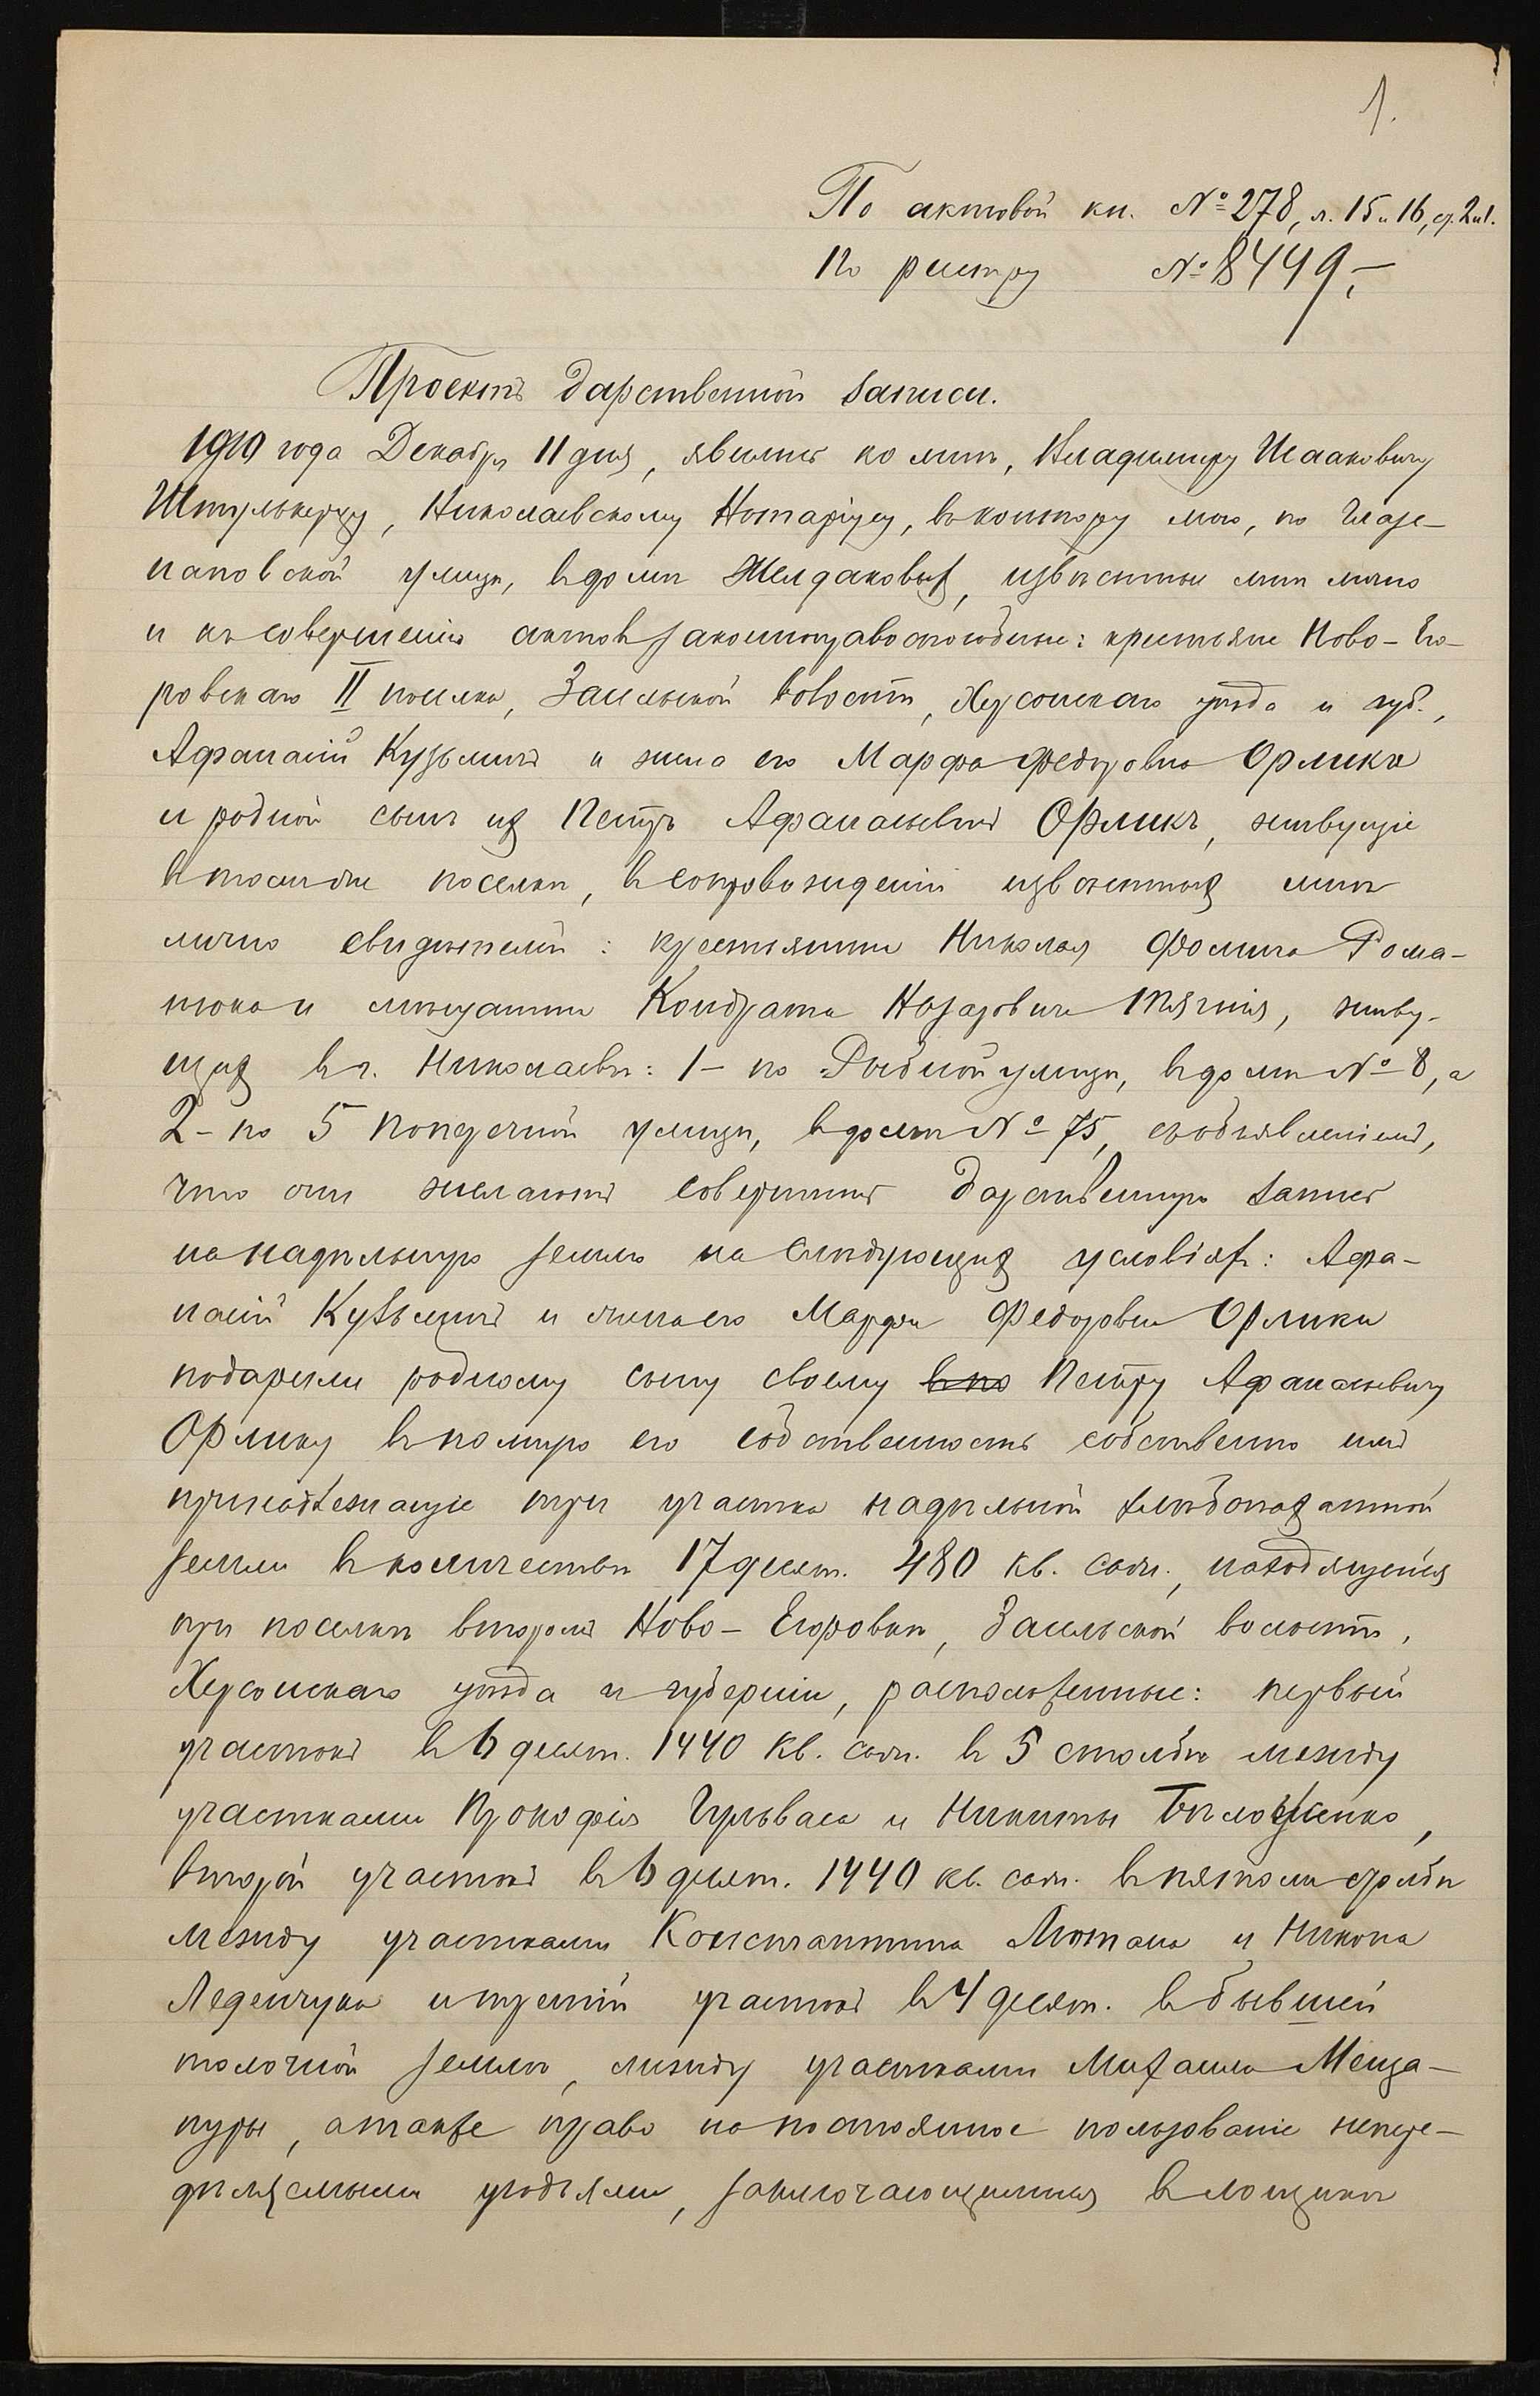 1.
По актовой кн. № 278, л. 15 и 16,
По реестру № 8449,-
Проектъ дарственной записи.
1910 года Декабря 11 дня, явились ко мнѣ, Владимиру Исааковичу
Николаевскому Нотаріусу, въ контору мою, по Глазе-
наповской улицѣ, въ домѣ Желдаковыхъ, извѣстные мнѣ лично
и къ совершенію актовъ законноправоспособные: крестьяне Ново-Его-
ровскаго II поселка, Засельской волости, Херсонскаго уѣзда и губ.,
Афанасій Кузьмичъ и жена его Марфа Федоровна Орлики
и родной сынъ ихъ Петръ Афанасьевичъ Орликъ, живущіе
въ томъ же поселкѣ, въ сопровожденіи извѣстныхъ мнѣ
лично свидѣтелей: крестьянина Николая Фомича Рома-
нюка и мѣщанина Кондрата Назаровича Тягнія, живу-
щихъ въ г. Николаевѣ: 1- по Рыбной улицѣ, въ домѣ № 8, а
2- по 5 Поперечной улицѣ, въ домѣ № 75, съ объявленіемъ,
что они желаютъ совершить дарственную запись
на надѣльную землю на слѣдующихъ условіяхъ: Афа-
насій Кузьмичъ и жена его Марфа Федоровна Орлики
подарили родному сыну своему въ по Петру Афанасьевичу
Орлику въ полную его собственность собственно имъ
принадлежащіе три участка надѣльной хлѣбопахатной
земли въ количествѣ 17 десят. 480 кв. саж., находящейся
при поселкѣ второмъ Ново-Егоровкѣ, Засельской волости,
Херсонскаго уѣзда и губерніи, расположенные: первый
участокъ въ 6 десят. 1440 кв. саж. въ 5 столбѣ между
участками Прокофія Гульваса и Никиты
второй участокъ въ 6 десят. 1440 кв. саж. въ пятомъ столбѣ
между участками Константина Лютаго и Никона
Леденчука и третій участокъ въ 4 десят. въ бывшей
толочной землѣ, между участками Михаила Меща-
нуры, а также право на постоянное пользованіе непере-
дѣляемыми угодьями, заключающимися въ лощинѣ